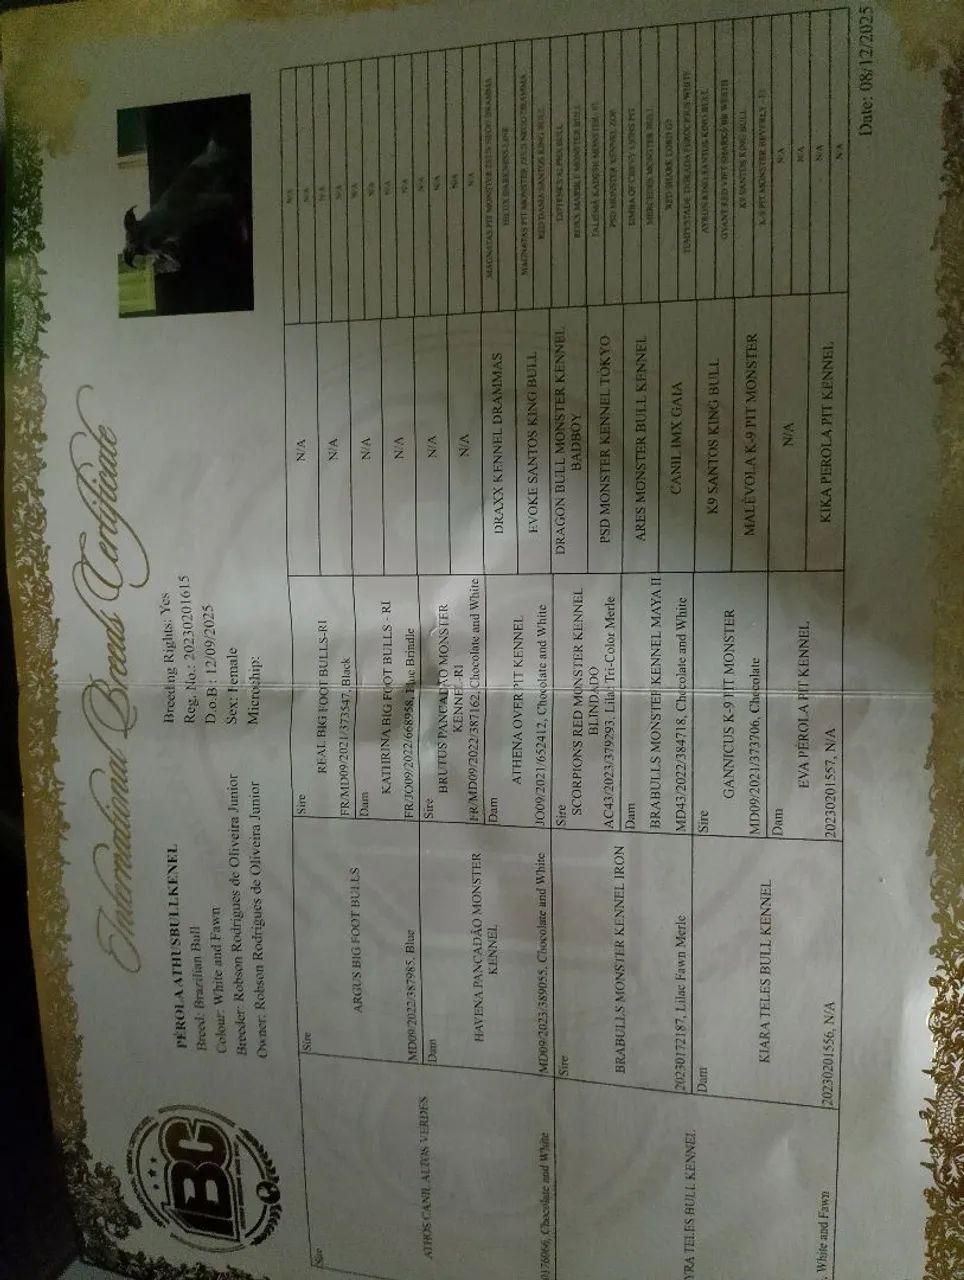 IBC
International Breeds Certificate
PÉROLA ATHUSBULLKENEL
Breed: Brazilian Bull
Colour: White and Fawn
Breeder: Robson Rodrigues de Oliveira Junior
Owner: Robson Rodrigues de Oliveira Junior
Breeding Rights: Yes
Reg. No.: 20230201615
D.o.B : 12/09/2025
Sex: Female
Microship:
Sire
ATHOS CANIL ALTOS VERDES
0176066, Chocolate and White
YRA TELES BULL KENNEL
White and Fawn
Sire
ARGUS BIG FOOT BULLS
MD09/2022/387985, Blue
Dam
HAVENA PANCADÃO MONSTER
KENNEL
MD09/2023/389055, Chocolate and White
Sire
BRABULLS MONSTER KENNEL IRON
20230172187, Lilac Fawn Merle
Dam
KIARA TELES BULL KENNEL
20230201556, N/A
Sire
REAL BIG FOOT BULLS-RI
FR/MD09/2021/373547, Black
Dam
KATHRINA BIG FOOT BULLS - RI
FR/JO09/2022/668958, Blue Brindle
Sire
BRUTUS PANCADÃO MONSTER
KENNEL-RI
FR/MD09/2022/387162, Chocolate and White
Dam
ATHENA OVER PIT KENNEL
JO09/2021/652412, Chocolate and White
Sire
SCORPIONS RED MONSTER KENNEL
BLINDADO
AC43/2023/379293, Lilac Tri-Color Merle
Dam
BRABULLS MONSTER KENNEL MAYA II
MD43/2022/384718, Chocolate and White
Sire
GANNICUS K-9 PIT MONSTER
MD09/2021/373706, Chocolate
Dam
EVA PÉROLA PIT KENNEL
20230201557, N/A
N/A
N/A
N/A
N/A
N/A
N/A
DRAXX KENNEL DRAMMAS
EVOKE SANTOS KING BULL
DRAGON BULL MONSTER KENNEL
BADBOY
PSD MONSTER KENNEL TOKYO
ARES MONSTER BULL KENNEL
CANIL IMX GAIA
K9 SANTOS KING BULL
MALÉVOLA K-9 PIT MONSTER
N/A
KIKA PEROLA PIT KENNEL
N/A
N/A
N/A
N/A
N/A
N/A
N/A
N/A
N/A
N/A
N/A
N/A
MAGNATAS PIT MONSTER ZEUS NEGO DRAMMA
MAGNATAS PIT MONSTER ZEUS NEGO DRAMMA
SANTOS KING BULL
MONSTER BULL
PSD MONSTER KENNEL ZOE
MERCEDES MONSTER BULL
RED SHARK LORD
AYRON KING SANTOS KING BULL
K9 SANTOS KING BULL
K-9 PIT MONSTER BEVERLY
N/A
N/A
N/A
N/A
Date: 08/12/2025